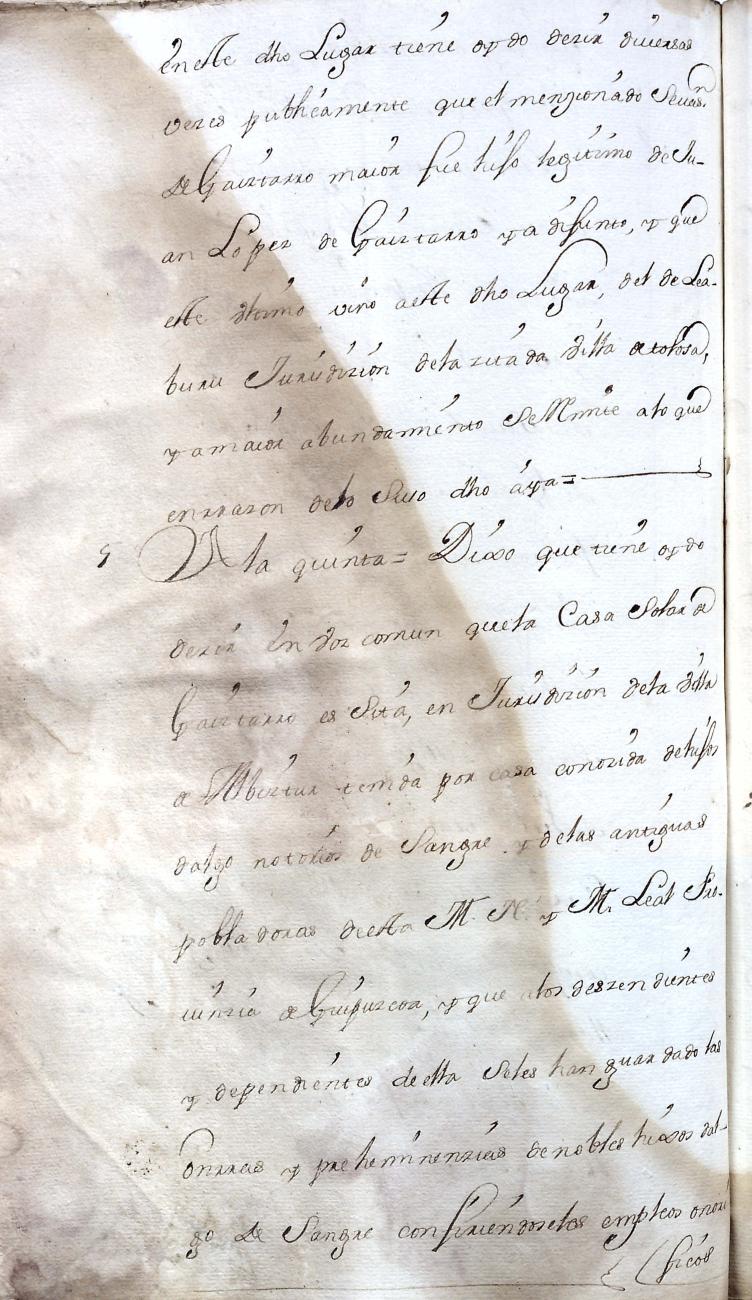 en este dho Lugar tiene oydo dezir diversas
vezes publicamente que el menzionado Sevasn
de Gaiztarro maior fue hijo legitimo de Ju-
an Lopez de Gaiztarro ya difunto, y que
este ultimo vino a este dho Lugar, del de Lea-
buru Jurisdizion de la zitada Villa de tolosa,
y a maior abundamiento se Rmite a lo que
en rrazon de lo suso dho aya =
5 A la quinta = Dixo que tiene oydo
dezir en voz comun que la Casa Solar de
Gaiztarro es sita, en Jurisdizion de la Villa
de Albiztur tenida por casa conozida de hijos
dalgo notorios de Sangre y de las antiguas
pobladoras de esta M. N. y M. Leal Pro-
uinzia de Guipuzcoa, y que a los deszendientes
y dependientes de ella se les han guardado las
onrras y preheminenzias de nobles hixos dal-
go de Sangre confiriendoseles empleos onori
ficos